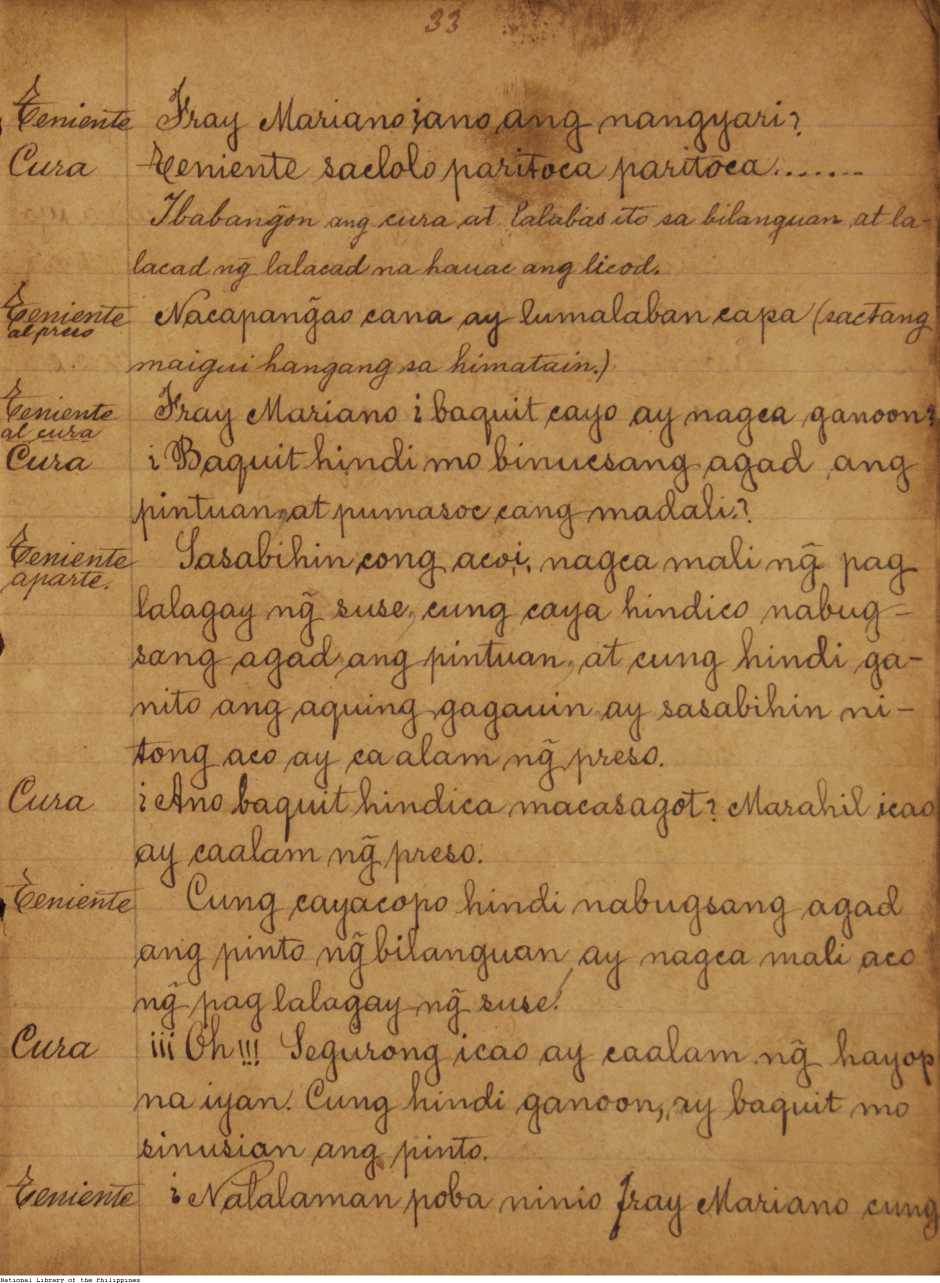 33
Teniente Fray Mariano ¿ano ang nangyari?
Cura Teniente saclolo paritoca paritoca.......
Ibabang̃on ang cura at lalabas ito sa bilanguan at la-
lacad ng̃ lalacad na hauac ang licod.
Teniente Nacapang̃ao cana ay lumalaban capa (sactang
al preso
maigui hangang sa himatain.)
Teniente Fray Mariano ¿baquit cayo ay nagca ganoon?
al cura
Cura ¿Baquit hindi mo binucsang agad ang
pintuan, at pumasoc cang madali?
Teniente Sasabihin cong acoi, nagca mali ng̃ pag
aparte.
lalagay ng̃ suse, cung caya hindico nabug-
sang agad ang pintuan, at cung hindi ga-
nito ang aquing gagauin ay sasabihin ni-
tong aco ay ca alam ng̃ preso.
Cura ¿Ano baquit hindica macasagot? Marahil icao
ay caalam ng̃ preso.
Teniente Cung cayacopo hindi nabugsang agad
ang pinto ng̃ bilanguan, ay nagca mali aco
ng̃ pag lalagay ng̃ suse.
Cura ¡¡¡Oh!!! Segurong icao ay caalam ng̃ hayop
na iyan. Cung hindi ganoon, ay baquit mo
sinusian ang pinto.
Teniente ¿Nalalaman poba ninio Fray Mariano cung
National Library of the Philippines